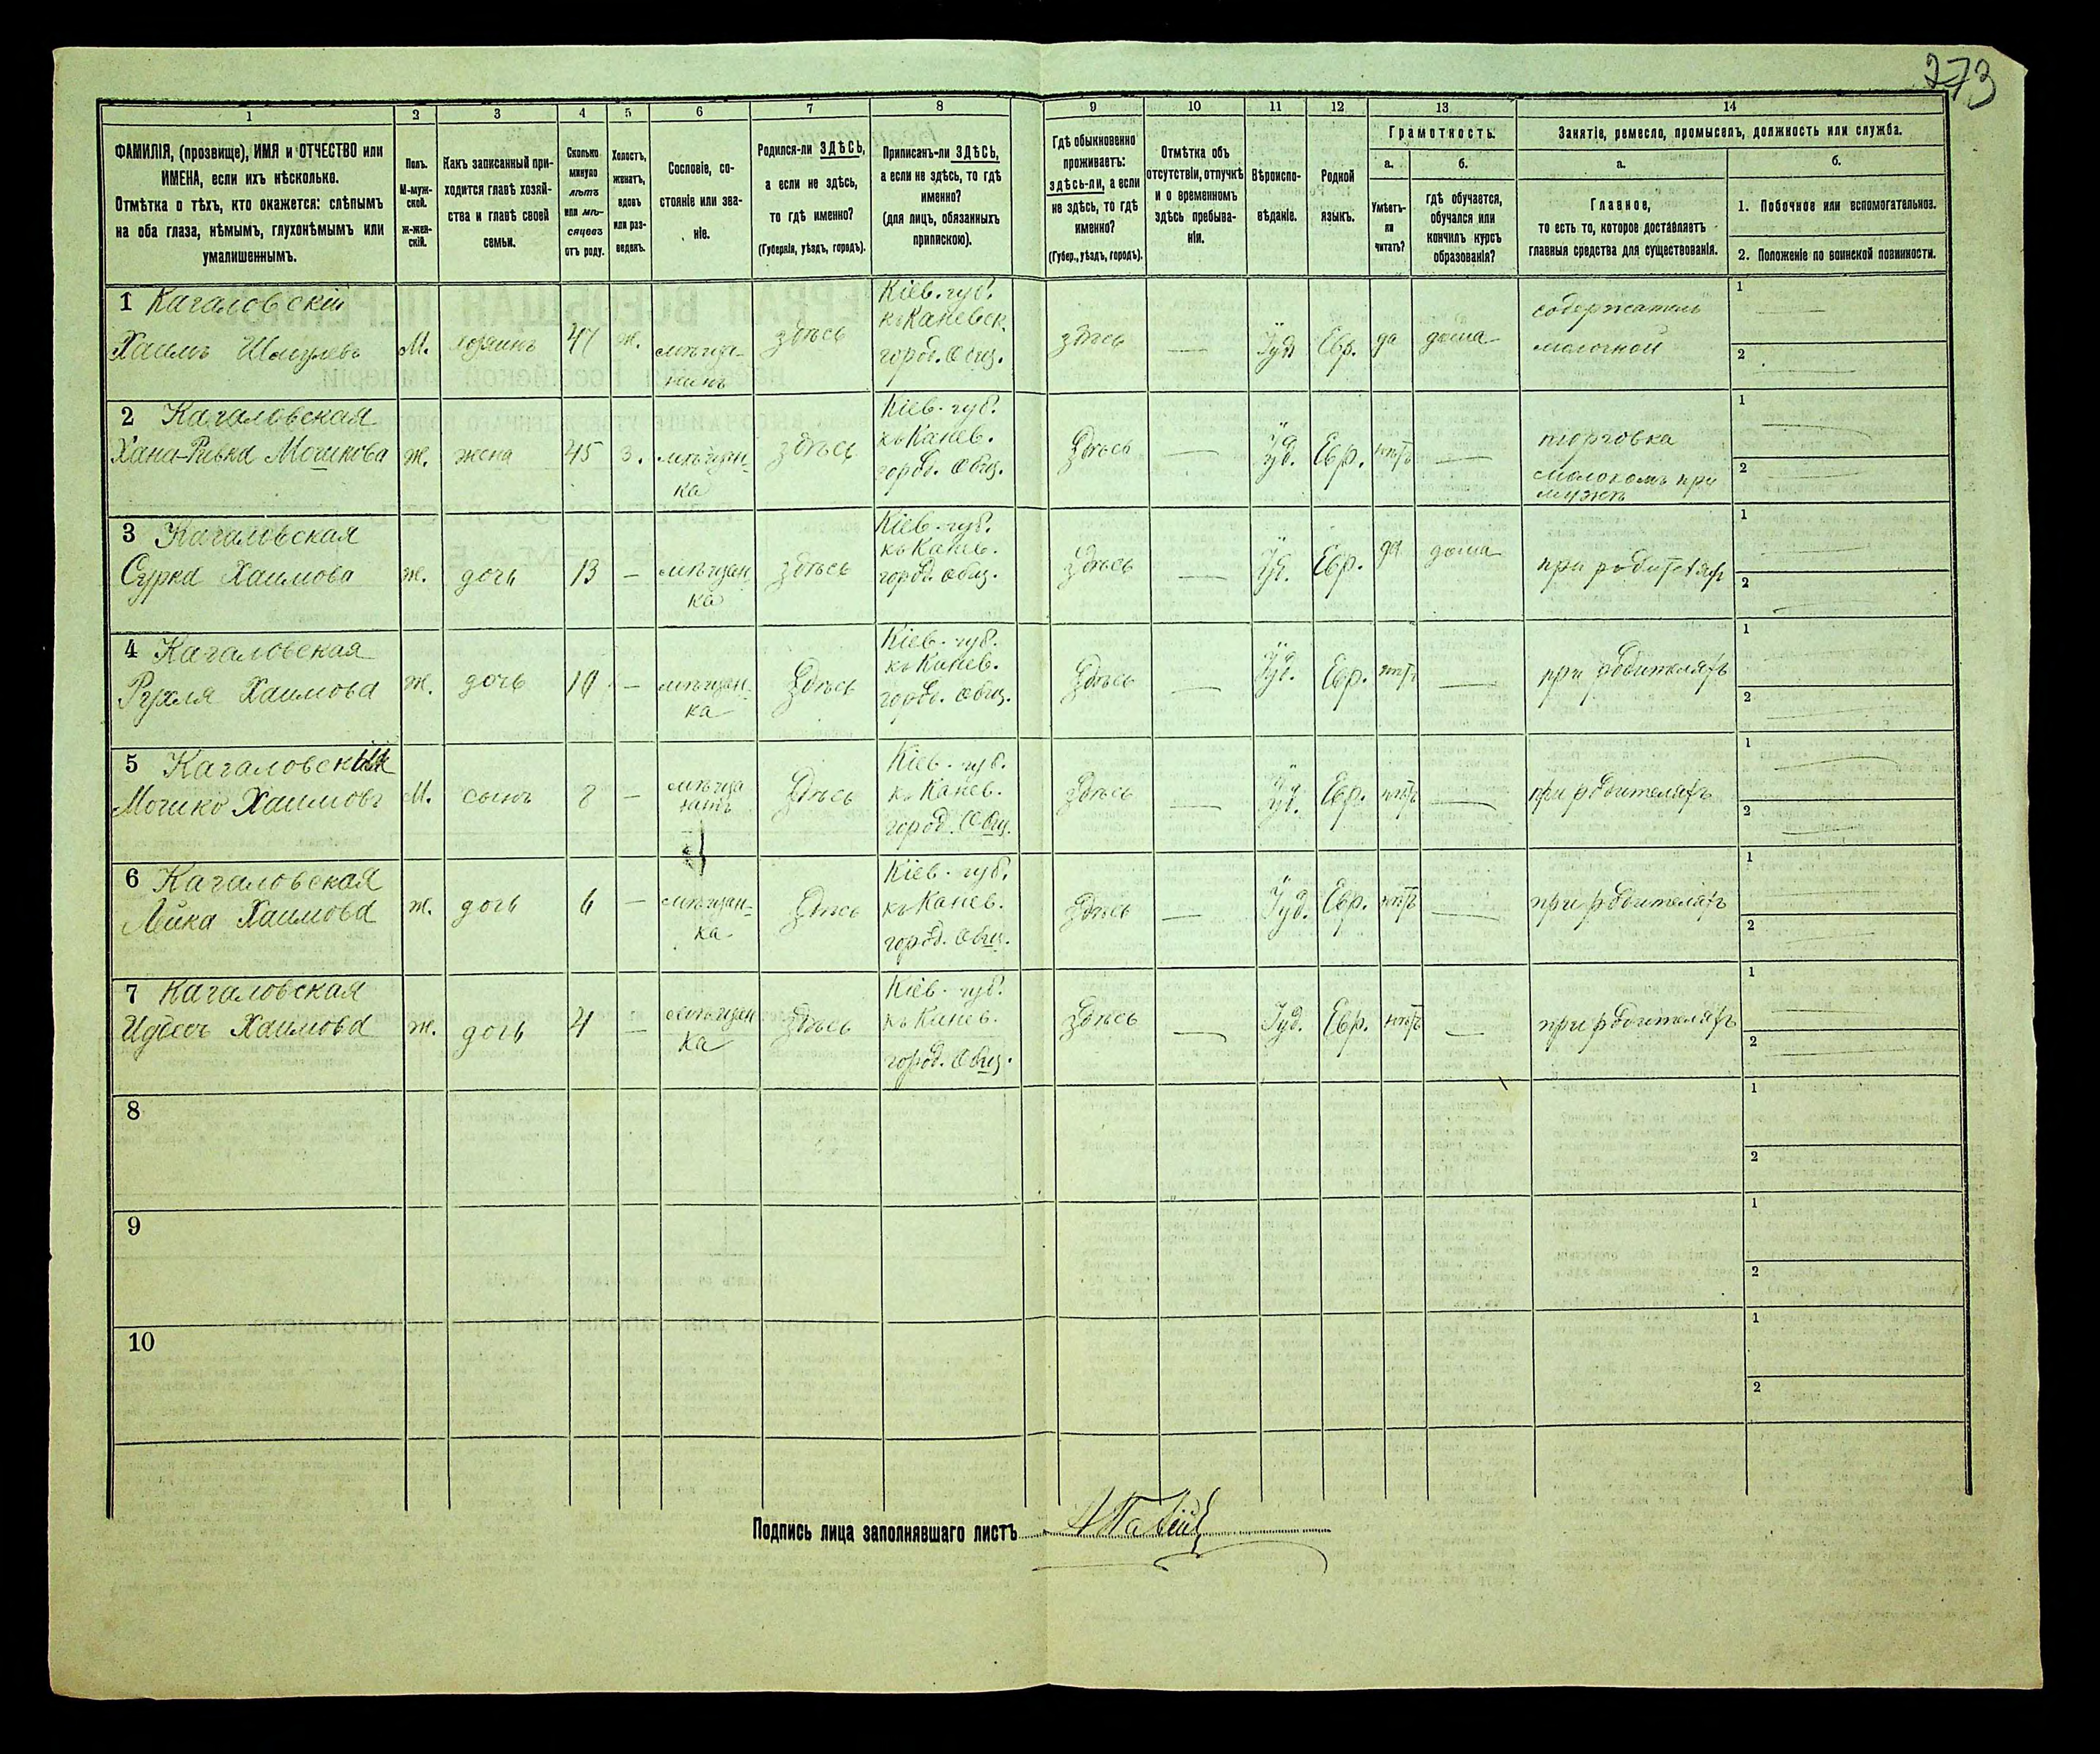 273
1
2
3
4
5
6
7
8
9
10
11
12
13
14
ФАМИЛІЯ, (прозвище), ИМЯ и ОТЧЕСТВО или
ИМЕНА, если ихъ нѣсколько.
Отмѣтка о тѣхъ, кто окажется: слѣпымъ
на оба глаза, нѣмымъ, глухонѣмымъ или
умалишеннымъ.
Полъ.
М-муж-
ской.
ж-жен-
скій.
Какъ записанный при-
ходится главѣ хозяй-
ства и главѣ своей
семьи.
Сколько
минуло
лѣтъ
или мѣ-
сяцевъ
отъ роду.
Холостъ,
женатъ,
вдовъ
или раз-
веденъ.
Сословіе, со-
стояніе или зва-
ніе.
Родился-ли ЗДѢСЬ,
а если не здѣсь,
то гдѣ именно?
(Губернія, уѣздъ, городъ).
Приписанъ-ли ЗДѢСЬ,
а если не здѣсь, то гдѣ
именно?
(для лицъ, обязанныхъ
припискою).
Гдѣ обыкновенно
проживаетъ:
здѣсь-ли, а если
не здѣсь, то гдѣ
именно?
(Губер., уѣздъ, городъ).
Отмѣтка объ
отсутствіи, отлучкѣ
и о временномъ
здѣсь пребыва-
ніи.
Вѣроиспо-
вѣданіе.
Родной
языкъ.
Грамотность.
а.
Умѣетъ-
ли
читать?
б.
гдѣ обучается,
обучался или
кончилъ курсъ
образованія?
Занятіе, ремесло, промыселъ, должность или служба.
а.
Главное,
то есть то, которое доставляетъ
главныя средства для существованія.
б.
1. Побочное или вспомогательное.
2. Положеніе по воинской повинности.
1 Кагаловскій
Хаимъ Шмулевъ
М.
хозяинъ
47
ж.
мѣща-
нинъ
здѣсь
Кіев. губ.
къ Каневск.
город. Общ.
здѣсь
—
Іуд.
Евр.
да
дома
содержатель
молочной
1 —
2 —
2 Кагаловская
Хана-Ривка Мошкова
ж.
жена
45
з.
мѣщан-
ка
здѣсь
Кіев. губ.
къ Канев.
город. Общ.
Здѣсь
—
Іуд.
Евр.
нѣтъ
—
торговка
молокомъ при
мужѣ
1 —
2 —
3 Кагаловская
Сурка Хаимова
ж.
дочь
13
—
мѣщан
ка
здѣсь
Кіев. губ.
къ Канев.
город. общ.
Здѣсь
—
Іуд.
Евр.
да
дома
при родителяхъ
1 —
2 —
4 Кагаловская
Рухля Хаимова
ж.
дочь
10
—
мѣщан-
ка
Здѣсь
Кіев. губ.
къ Канев.
город. Общ.
Здѣсь
—
Іуд.
Евр.
нѣтъ
—
при родителяхъ
1 —
2 —
5 Кагаловскій
Мошко Хаимовъ
М.
сынъ
8
—
мѣща
нинъ
Здѣсь
Кіев. губ.
къ Канев.
город. Общ.
Здѣсь
—
Іуд.
Евр.
нѣтъ
—
при родителяхъ
1 —
2 —
6 Кагаловская
Лейка Хаимова
ж.
дочь
6
—
мѣщан-
ка
Здѣсь
Кіев. губ.
къ Канев.
город. Общ.
Здѣсь
—
Іуд.
Евр.
нѣтъ
—
при родителяхъ
1 —
2 —
7 Кагаловская
Идесъ Хаимова
ж.
дочь
4
—
мѣщан
ка
Здѣсь
Кіев. губ.
къ Канев.
город. Общ.
Здѣсь
—
Іуд.
Евр.
нѣтъ
—
при родителяхъ
1 —
2 —
8
1
2
9
1
2
10
1
2
Подпись лица заполнявшаго листъ